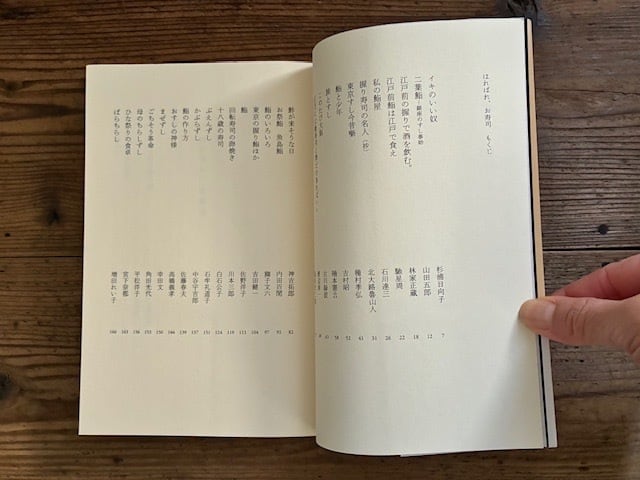 はればれ、お寿司 もくじ
イキのいい奴 杉浦日向子 7
二葉鮨―銀座のすし事始 山田五郎 12
江戸前の握りで酒を飲む。 林家正蔵 18
江戸前鮨は江戸で食え 馳星周 22
私の鮨屋 石川達三 26
握り寿司の名人(抄) 北大路魯山人 31
東京すし今昔噺 種村季弘 41
鮨と少年 吉村昭 52
旅とすし 58
鮓が来そうな日 神吉拓郎 82
お祭鮨 魚島鮨 内田百閒 91
鮨のいろいろ 獅子文六 97
東京の握り鮨ほか 吉田健一 104
鮨 佐野洋子 113
回転寿司の海焼き 川本三郎 119
十八歳の寿司 白石公子 124
ぶえんずし 石牟礼道子 131
かぶらずし 中谷宇吉郎 137
鮨の作り方 佐藤春夫 139
おすしの神様 高橋義孝 144
まぜずし 幸田文 150
ごちそう革命 角田光代 153
母のちらしずし 平松洋子 156
ひな祭りの食卓 宮下奈都 163
ばらちらし 増田れい子 166